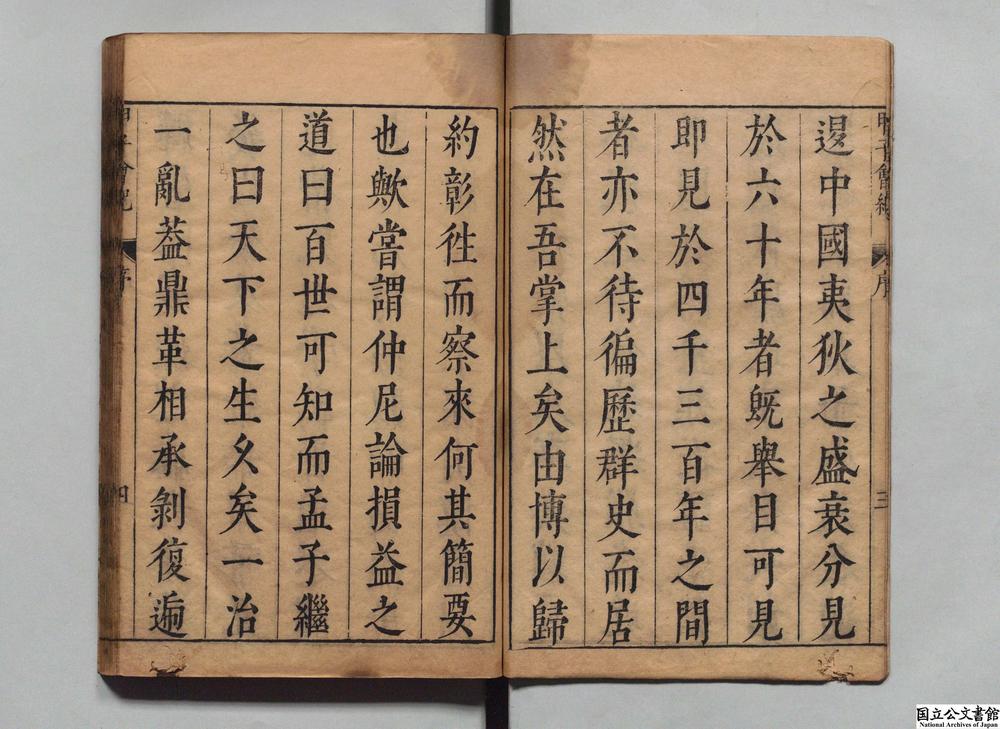 甲子會紀 序 三
邊中國夷狄之盛衰分見
於六十年者旣舉目可見
即見於四千三百年之間
者亦不待徧歷群史而居
然在吾掌上矣由博以歸
約彰徃而察來何其簡要
也歟嘗謂仲尼論損益之
道曰百世可知而孟子繼
之曰天下之生久矣一治
一亂葢鼎革相承剝復遍
甲子會紀 序 四
国立公文書館
National Archives of Japan